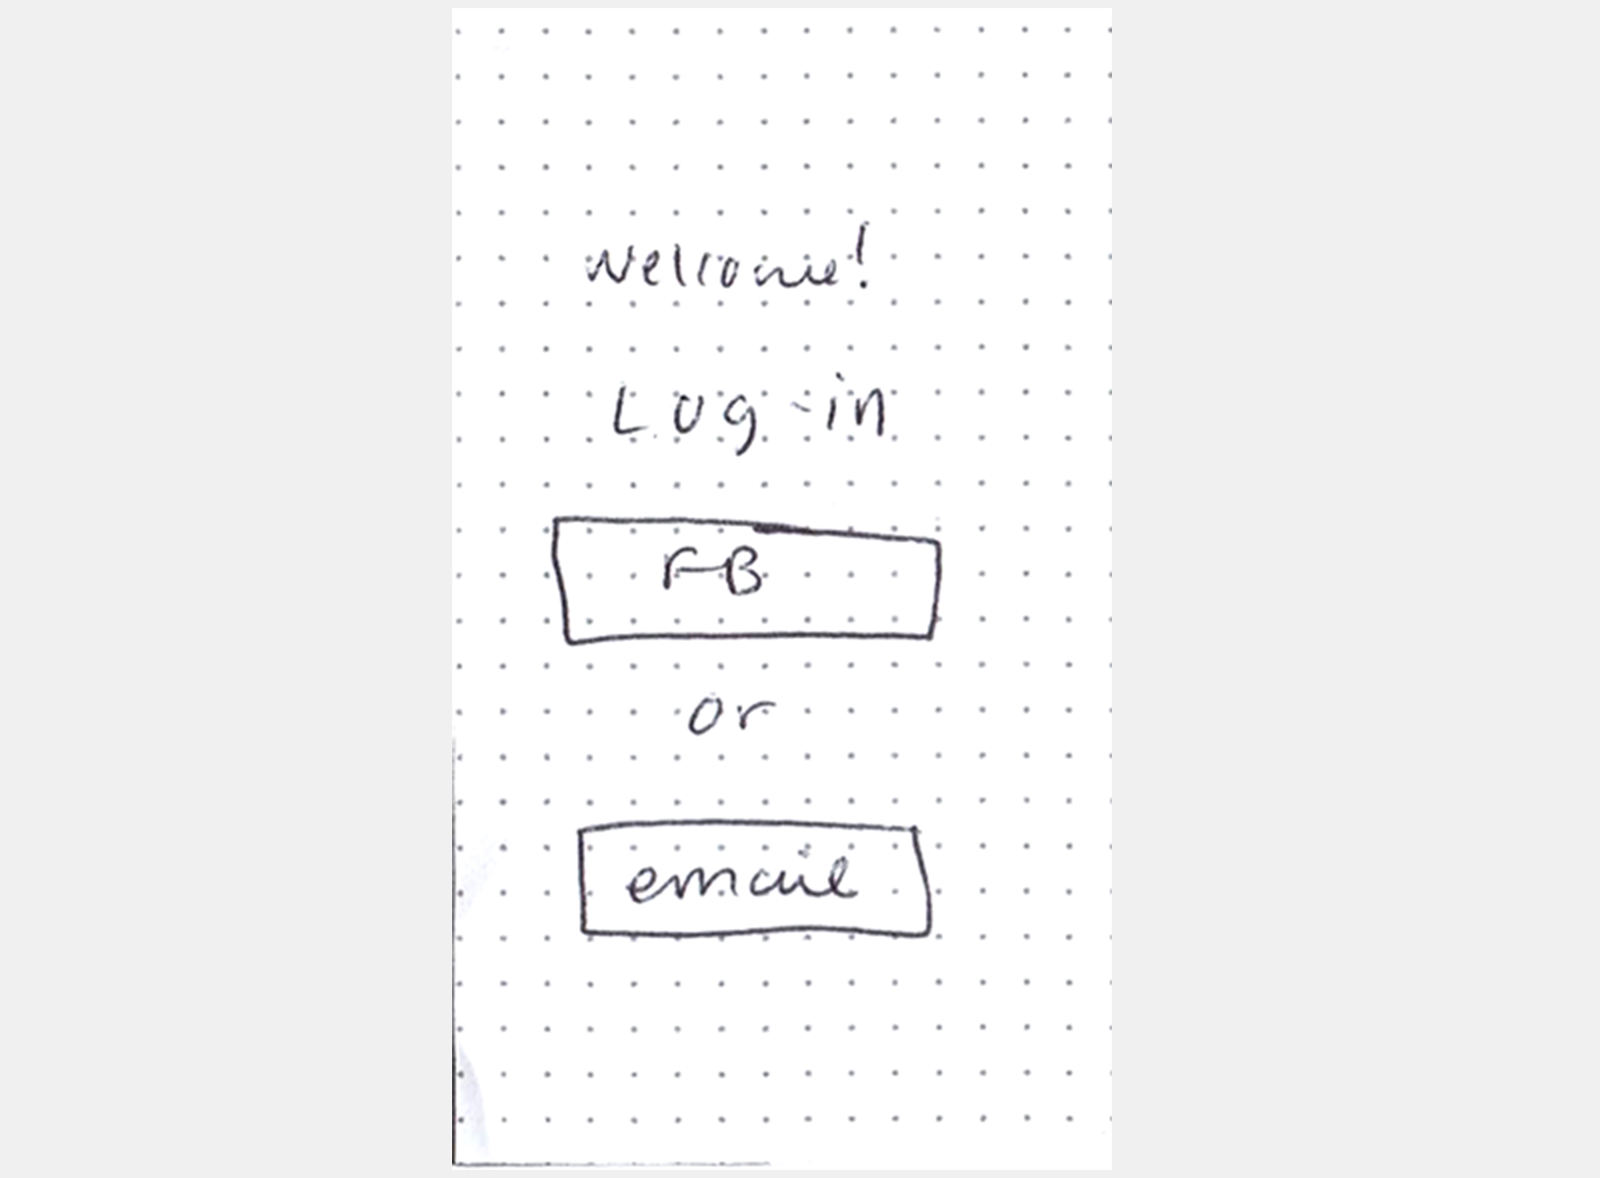 Welcome!
Log-in
FB
or
email